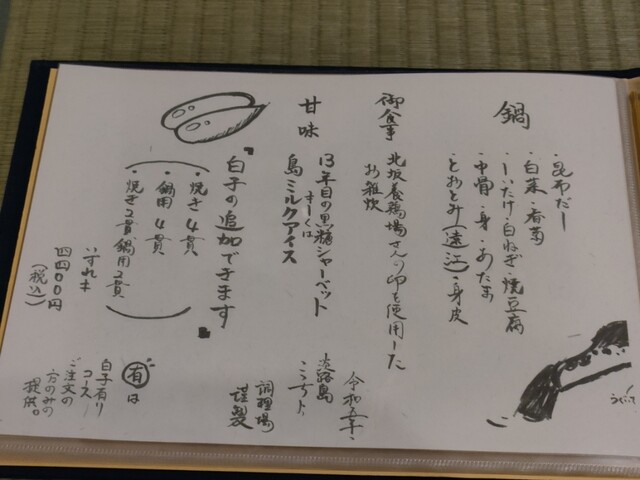 鍋
・昆布だし
・白菜・春菊
・しいたけ・白ねぎ・焼豆腐
・中骨・身・あたま
・とおとみ(遠江)・身皮
御食事
北坂養鶏場さんの卵を使用した
お雑炊
甘味
13年目の黒糖シャーベット
もしくは
島ミルクアイス
『白子の追加できます』
・焼き4貫
・鍋用4貫
・焼き2貫鍋用2貫
いずれも
四四〇〇円
(税込)
令和五年・
淡路島
こっちょ
調理場
謹製
有は
白子有り
コース
ご注文の
方のみの
提供。